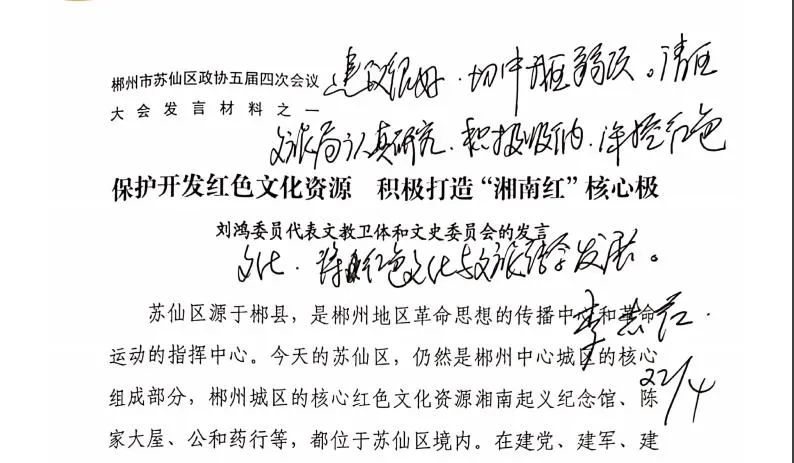 郴州市苏仙区政协五届四次会议
大会发言材料之一
建议很好·切中我区弱项。请区
文旅局认真研究、积极吸纳、深挖红色
保护开发红色文化资源 积极打造“湘南红”核心极
刘鸿委员代表文教卫体和文史委员会的发言
文化·将红色文化与文旅结合发展。
苏仙区源于郴县，是郴州地区革命思想的传播中心和革命
李
运动的指挥中心。今天的苏仙区，仍然是郴州中心城区的核心
22/4
组成部分，郴州城区的核心红色文化资源湘南起义纪念馆、陈
家大屋、公和药行等，都位于苏仙区境内。在建党、建军、建